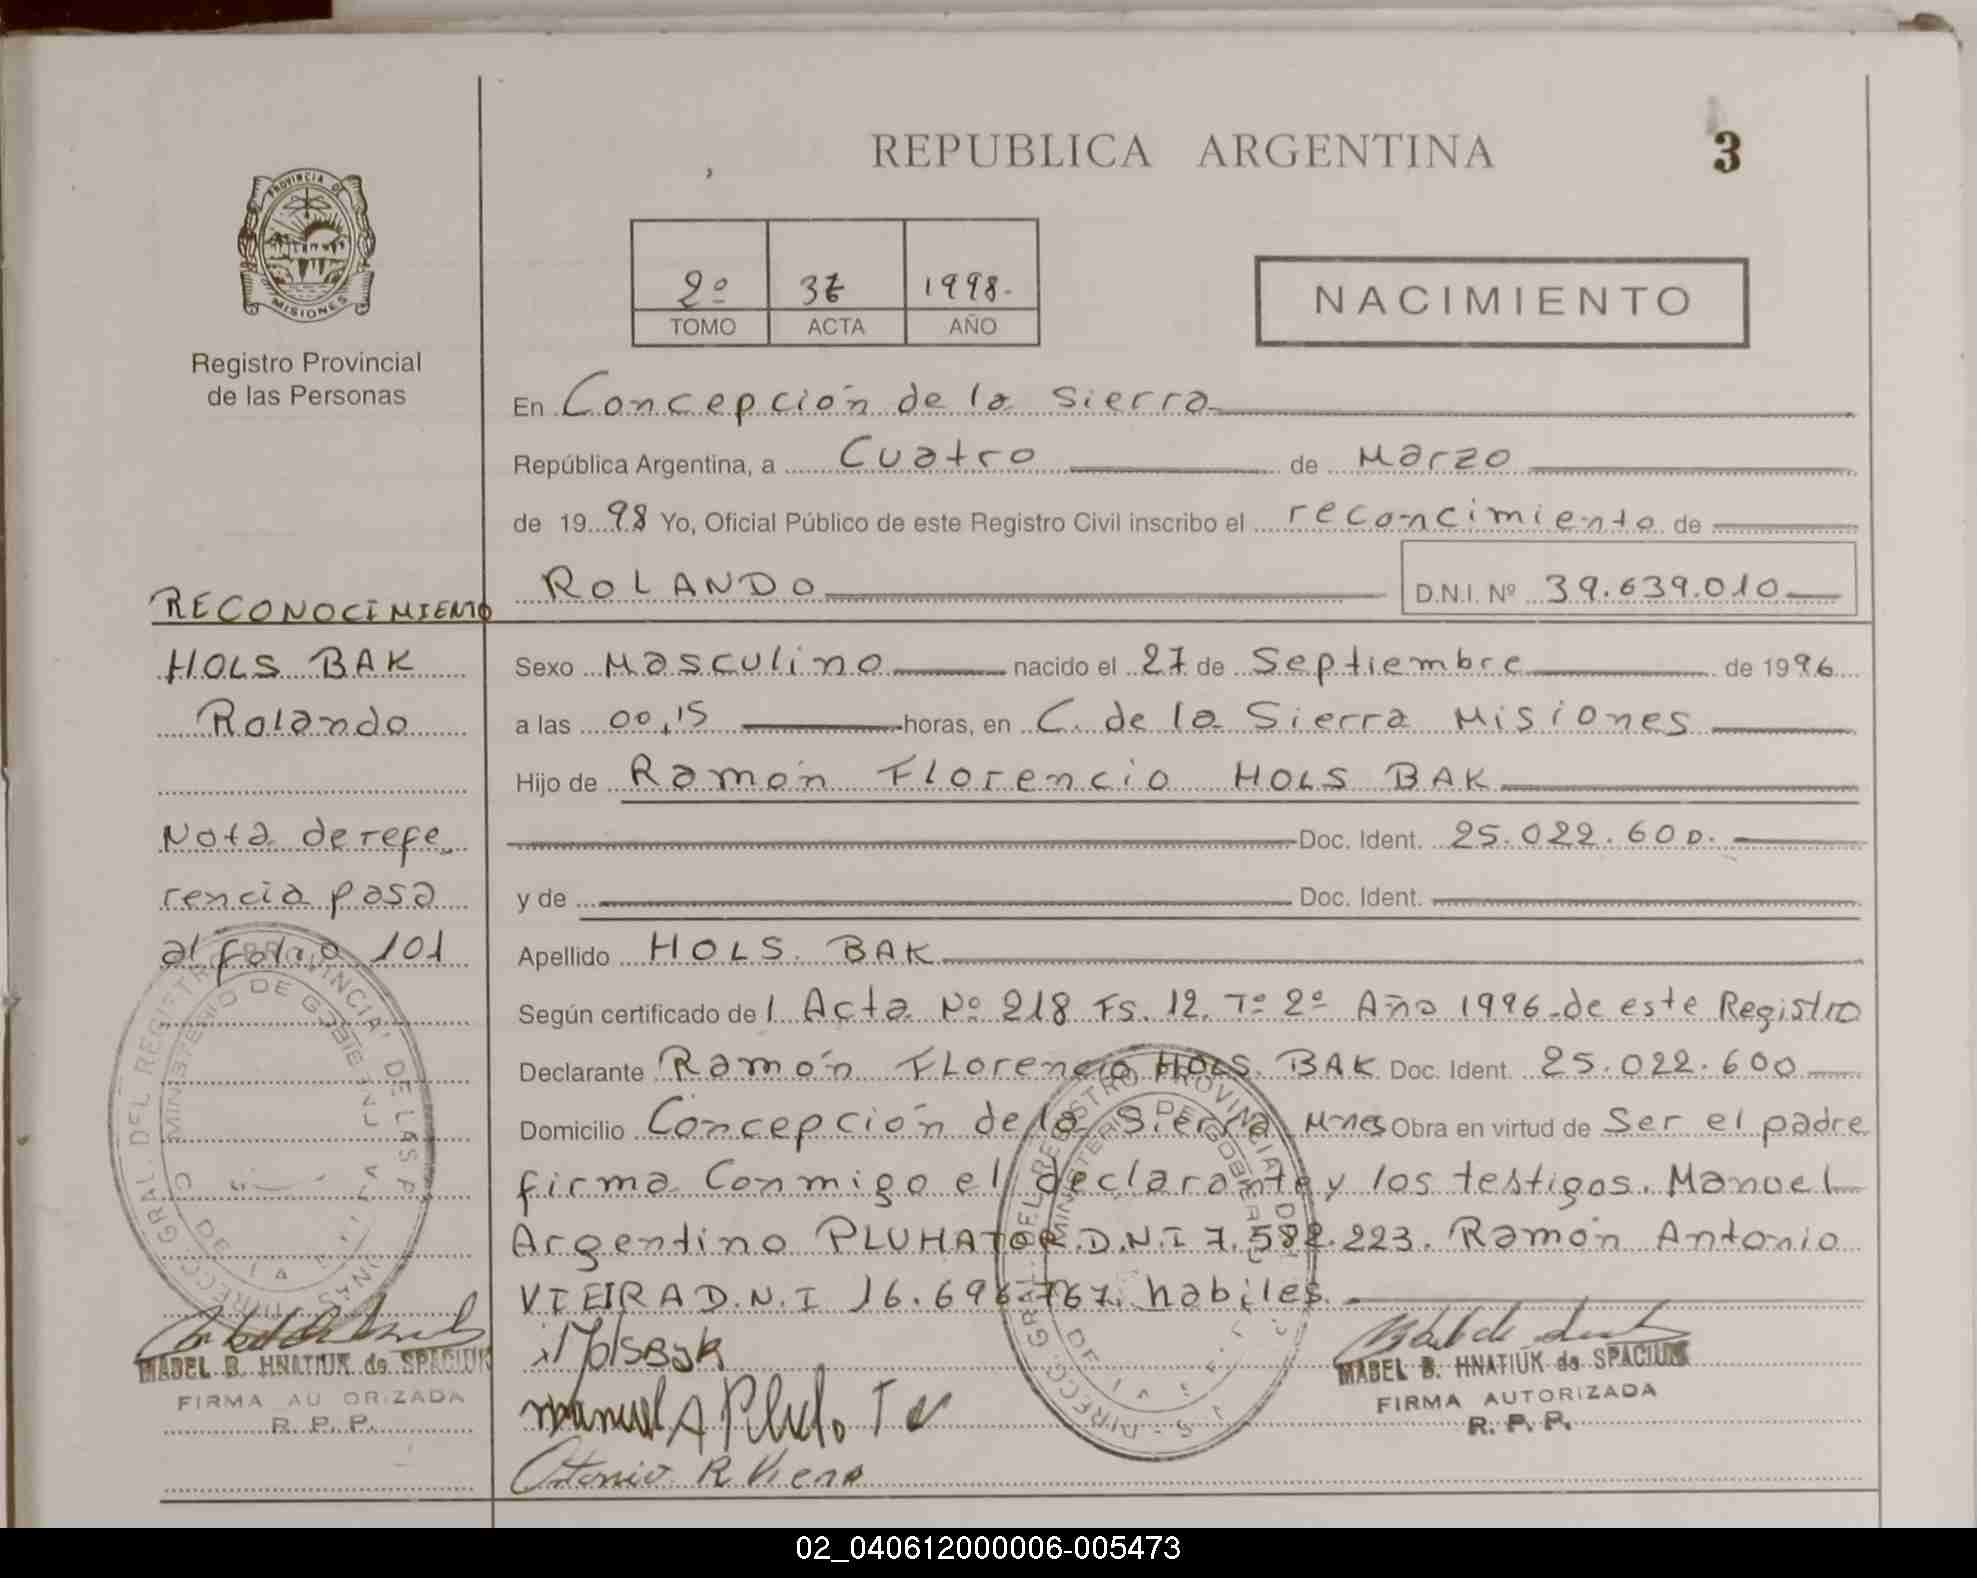 REPUBLICA ARGENTINA
3
PROVINCIA DE
MISIONES
Registro Provincial
de las Personas
2º 1998.
TOMO ACTA AÑO
NACIMIENTO
En Concepción de la Sierra
República Argentina, a Cuatro de Marzo
de 1998 Yo, Oficial Público de este Registro Civil inscribo el reconcimiento de
ROLANDO D.N.I. Nº 39.639.010
RECONOCIMIENTO
HOLS BAK
Rolando
Nota de refe
rencia pasa
al folio 101
Sexo Masculino nacido el 27 de Septiembre de 1996
a las 00,15 horas, en C. de la Sierra Misiones
Hijo de Ramón Florencio HOLS BAK
Doc. Ident. 25.022.600.
y de Doc. Ident.
Apellido HOLS BAK
Según certificado de l Acta Nº 218 Fs. 12. Tº 2º Año 1996 de este Registro
Declarante Ramón Florencio HOLS BAK Doc. Ident. 25.022.600
Domicilio Concepción de la Sierra Mnes Obra en virtud de Ser el padre
firma Conmigo el declarante y los testigos. Manuel
Argentino PLUHATOR D.N.I 7.582.223. Ramón Antonio
VIEIRA D.N.I 16.696.767. habiles.
HolsBak
Manuel A
Antonio R.
MABEL B. HNATIUK de SPACIUK
FIRMA AUTORIZADA
R. P. P.
MABEL B. HNATIUK de SPACIUK
FIRMA AUTORIZADA
R. P. P.
02_040612000006-005473